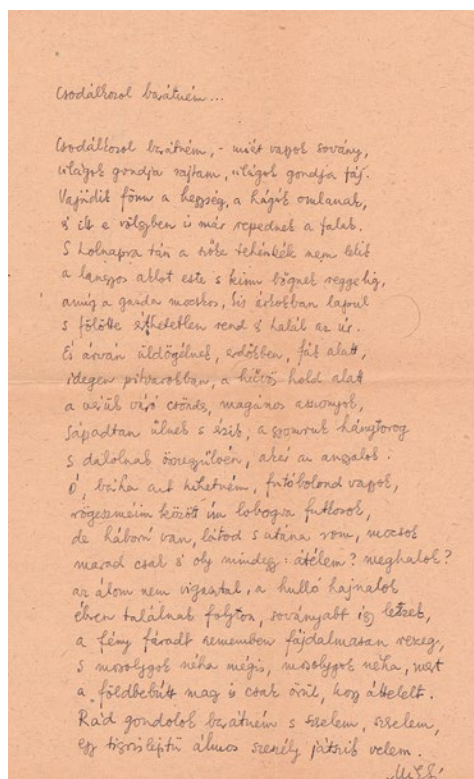 Csodálkozol barátném...
Csodálkozol barátném, - miért vagyok sovány,
világok gondja rajtam, világok gondja fáj.
Vajúdik fönn a hegység, a hágók omlanak,
s itt e völgyben is már repednek a falak.
S holnapra tán a szőke tehénkék nem lelik
a langyos aklot este s kinn bőgnek reggelig,
amíg a gazda mocskos, kis árkokban lapul
s fölötte érthetetlen rend s halál az úr.
És árván üldögélnek, erdőkben, fák alatt,
idegen pitvarokban, a hűvös hold alatt
a váró csöndes, magános asszonyok,
sápadtan ülnek s érzik, a gyomruk hánytorog
s dalolnak összegyűlvén, akár az angyalok.
Ó, bárha azt hihetném, futóbolond vagyok,
rögeszméim között ím lobogva futkosok,
de háború van, látod s utána rom, mocsok
marad csak s oly mindegy: átélem? meghalok?
az álom nem vigasztal, a hulló hajnalok
ébren találnak folyton, soványabb így leszek,
a fény fáradt szememben fájdalmasan rezeg,
s mosolygok néha mégis, mosolygok néha, mert
a földbebútt mag is csak örül, hogy áttelelt.
Rád gondolok barátném s szerelem, szerelem,
egy tigrisléptű álmos szeszély játszik velem.